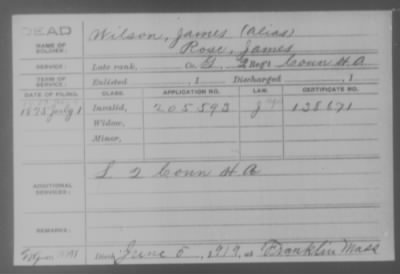 DEAD
NAME OF SOLDIER:
Wilson, James (alias)
Rose, James
SERVICE:
Late rank, Co. G, 2 Reg't Conn H.A.
TERM OF SERVICE:
Enlisted , 1 Discharged , 1
DATE OF FILING. CLASS. APPLICATION NO. LAW. CERTIFICATE NO.
1875 July 1 Invalid, 205593 128671
Widow,
Minor,
ADDITIONAL SERVICES:
2 Conn H.A
REMARKS:
Died June 5, 1919, at Franklin Mass